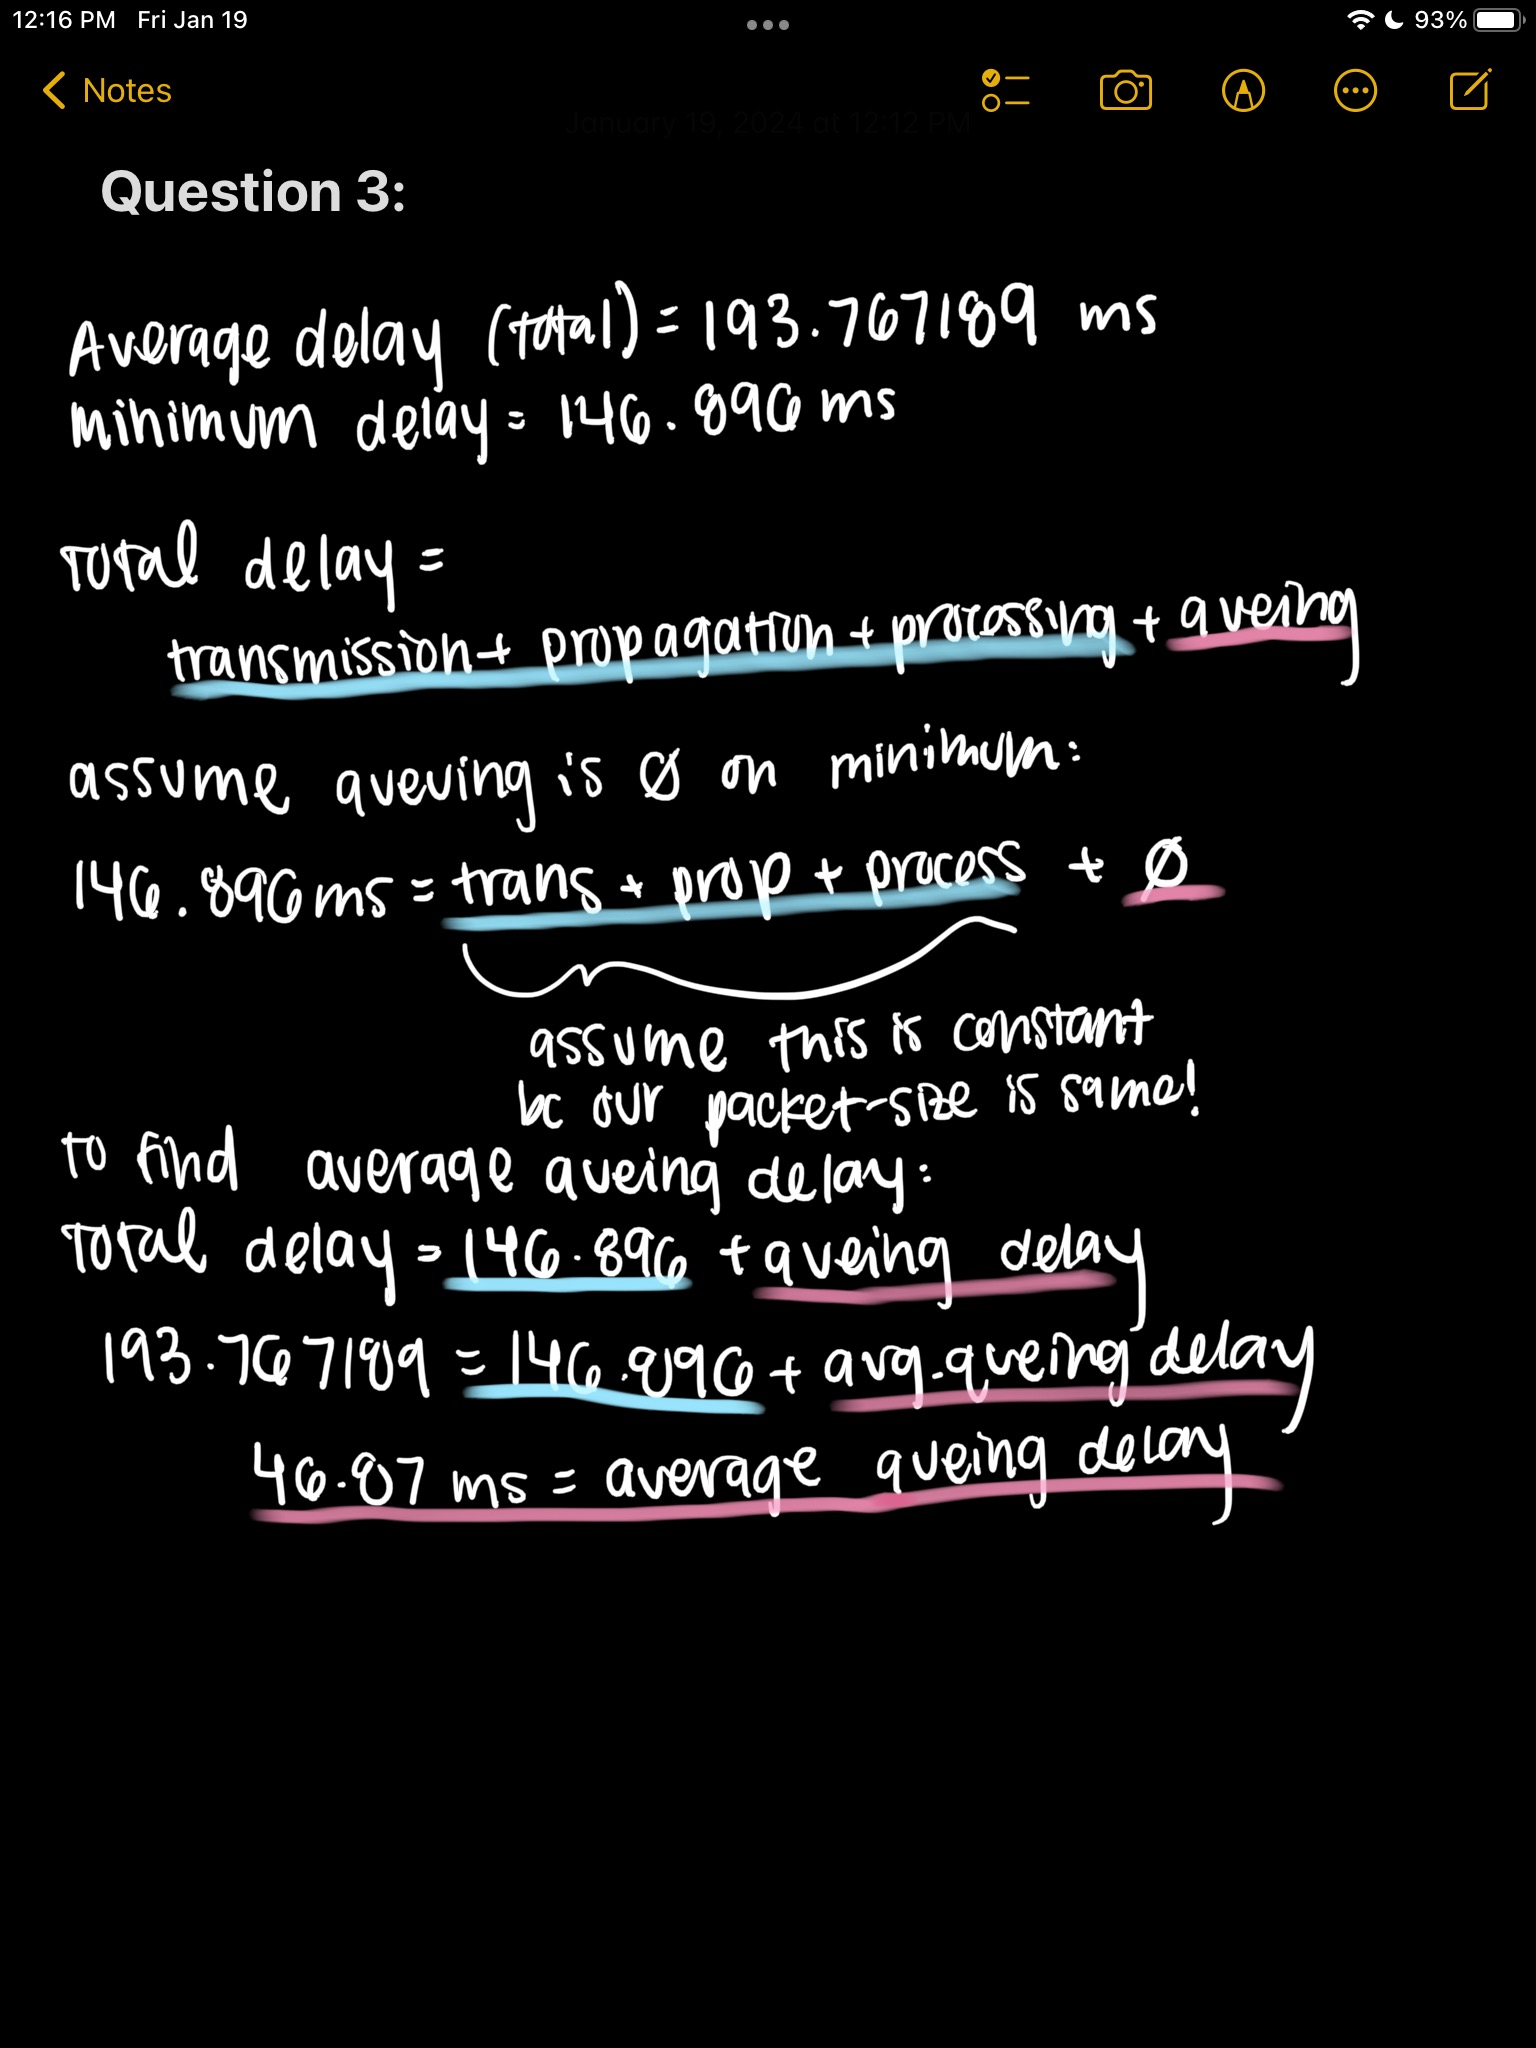 12:16 PM Fri Jan 19
93%
Notes
January 19, 2024 at 12:12 PM
Question 3:
Average delay (total) = 193.767189 ms
minimum delay = 146.896 ms
Total delay =
transmission + propagation + processing + queing
assume queuing is Ø on minimum:
146.896 ms = trans + prop + process + Ø
assume this is constant
bc our packet-size is same!
to find average queing delay:
Total delay = 146.896 + queing delay
193.767189 = 146.896 + avg. queing delay
46.87 ms = average queing delay